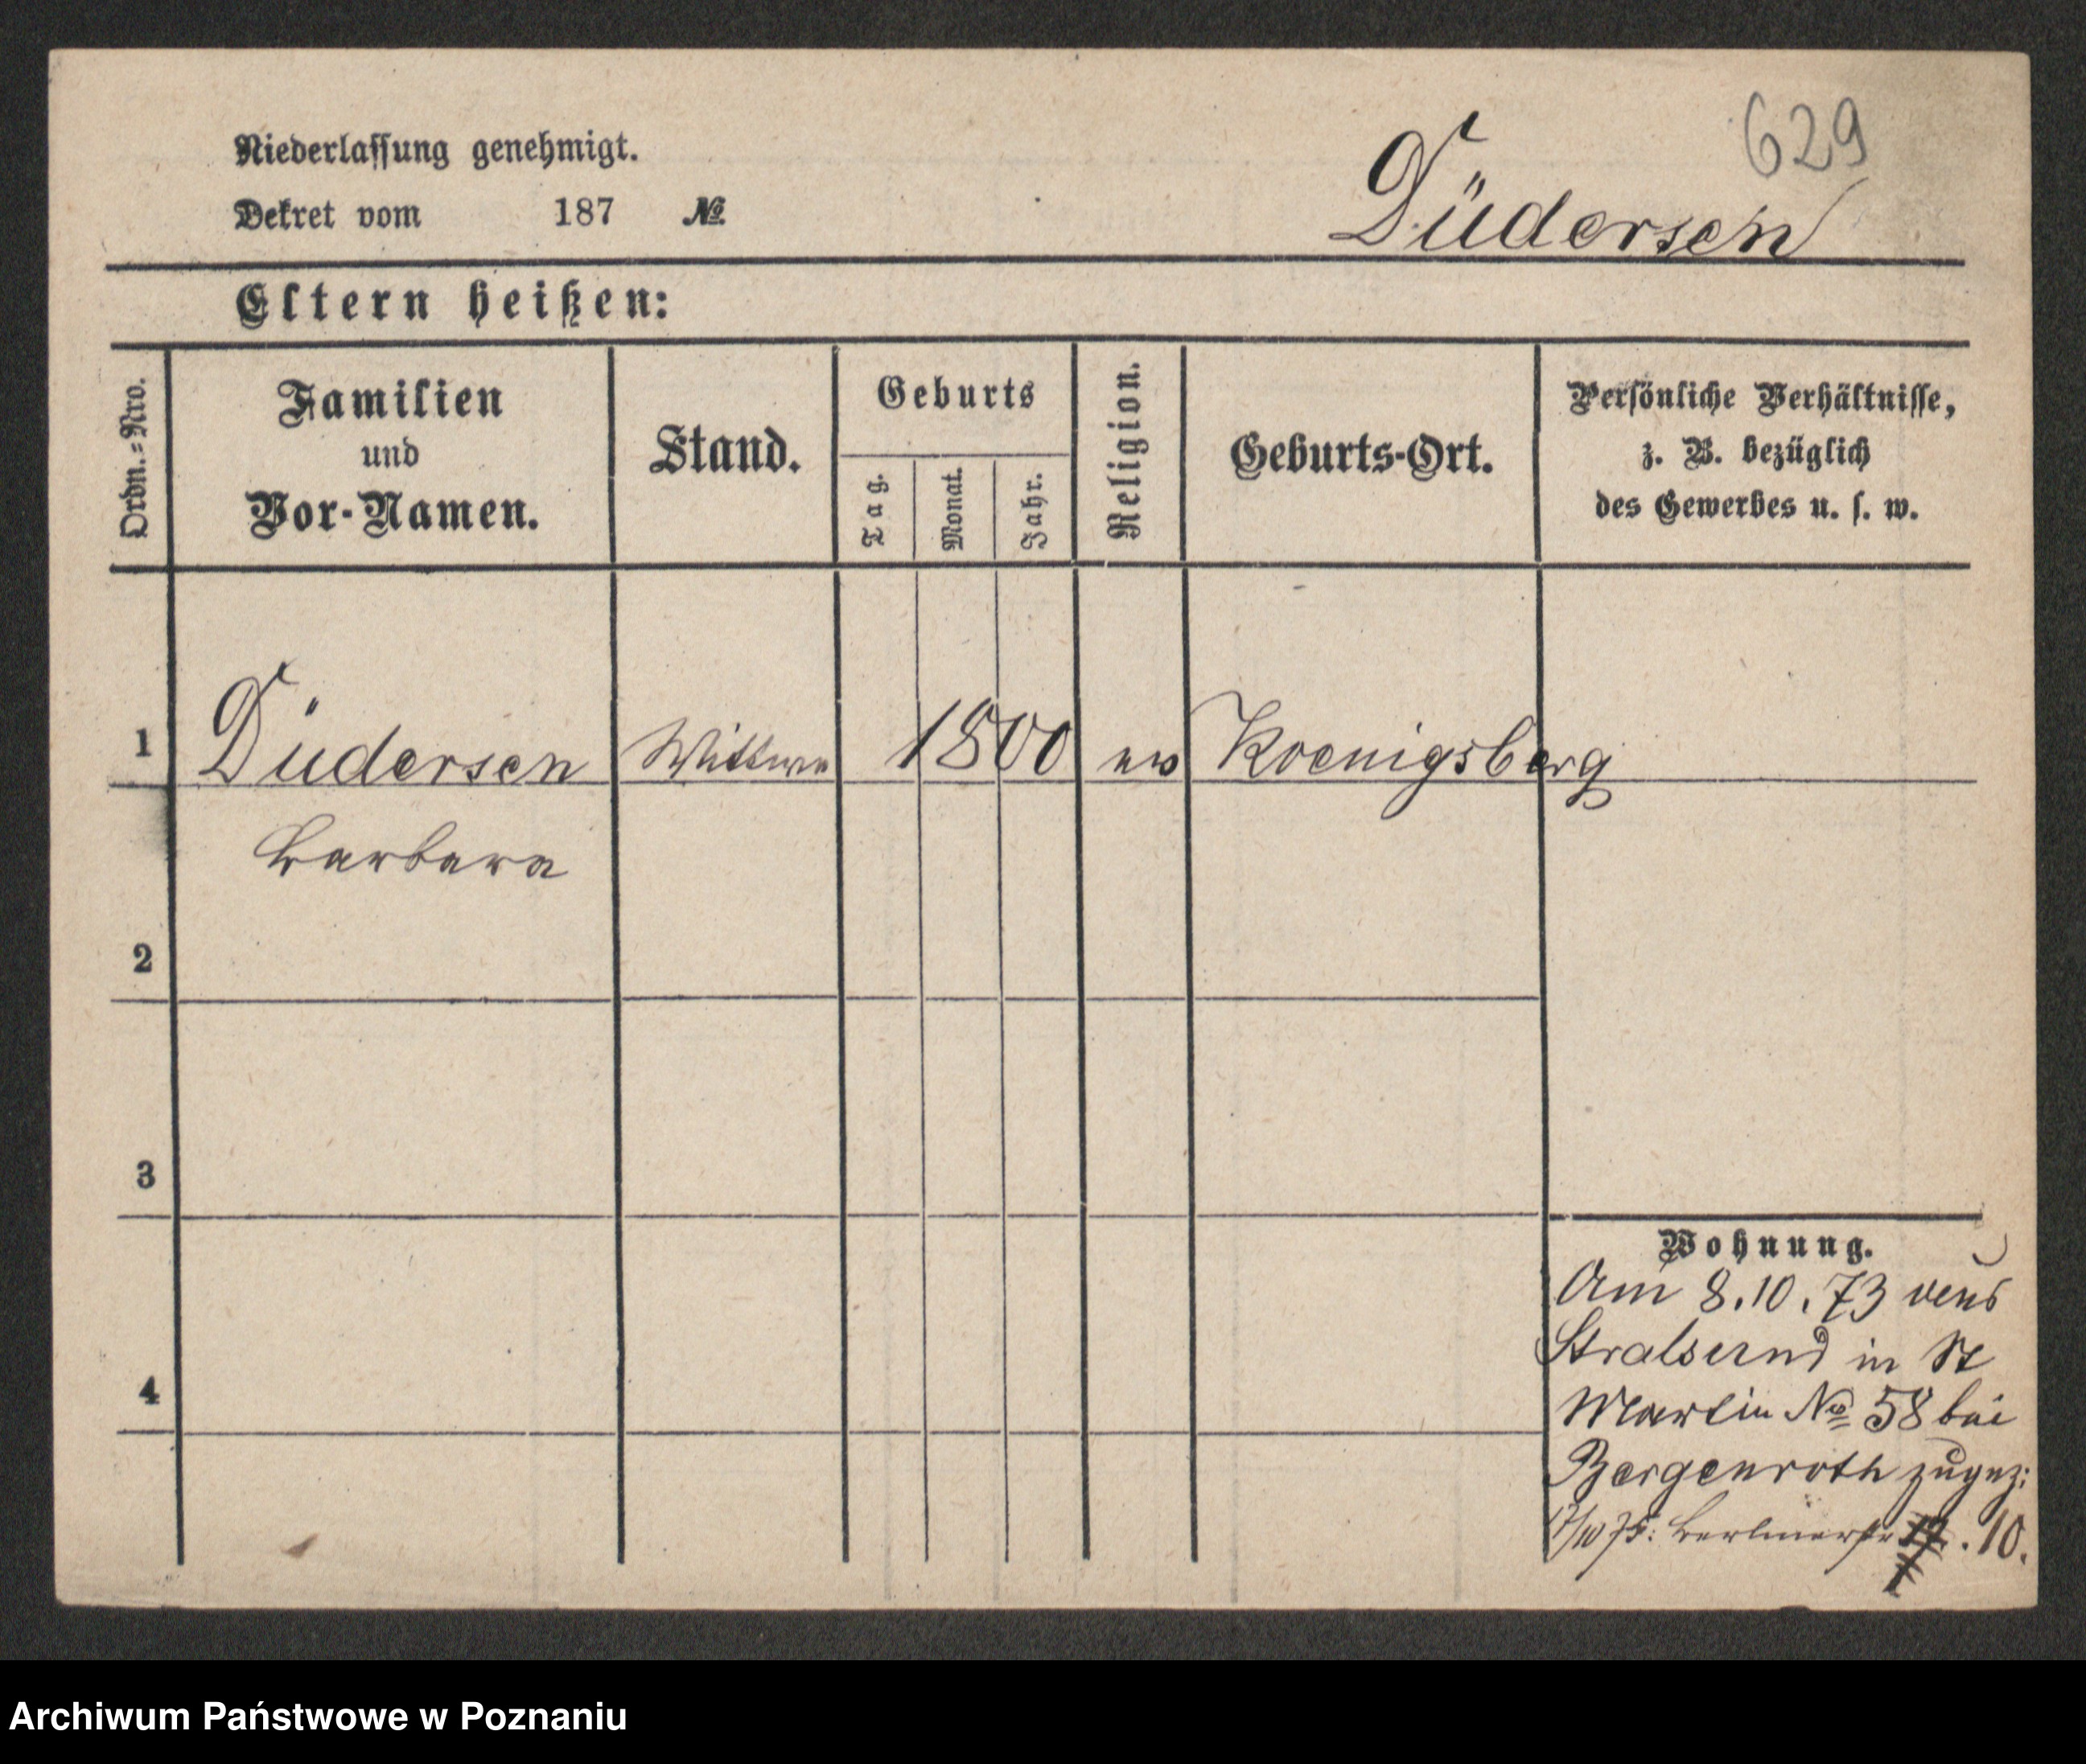 629
Niederlassung genehmigt.
Dekret vom 187 №
Düdersen
Eltern heißen:
Ordn.=Nro.
Familien
und
Vor-Namen.
Stand.
Geburts
Tag.
Monat.
Jahr.
Religion.
Geburts-Ort.
Persönliche Verhältnisse,
z. B. bezüglich
des Gewerbes u. s. w.
1 Düdersen Wittwe 1800 ev Koenigsberg
Barbara
2
3
4
Wohnung.
Am 8.10.73 von
Stralsund in St
Martin No 58 bei
Bergenroth zugez:
75: Berlinerstr 10.
Archiwum Państwowe w Poznaniu